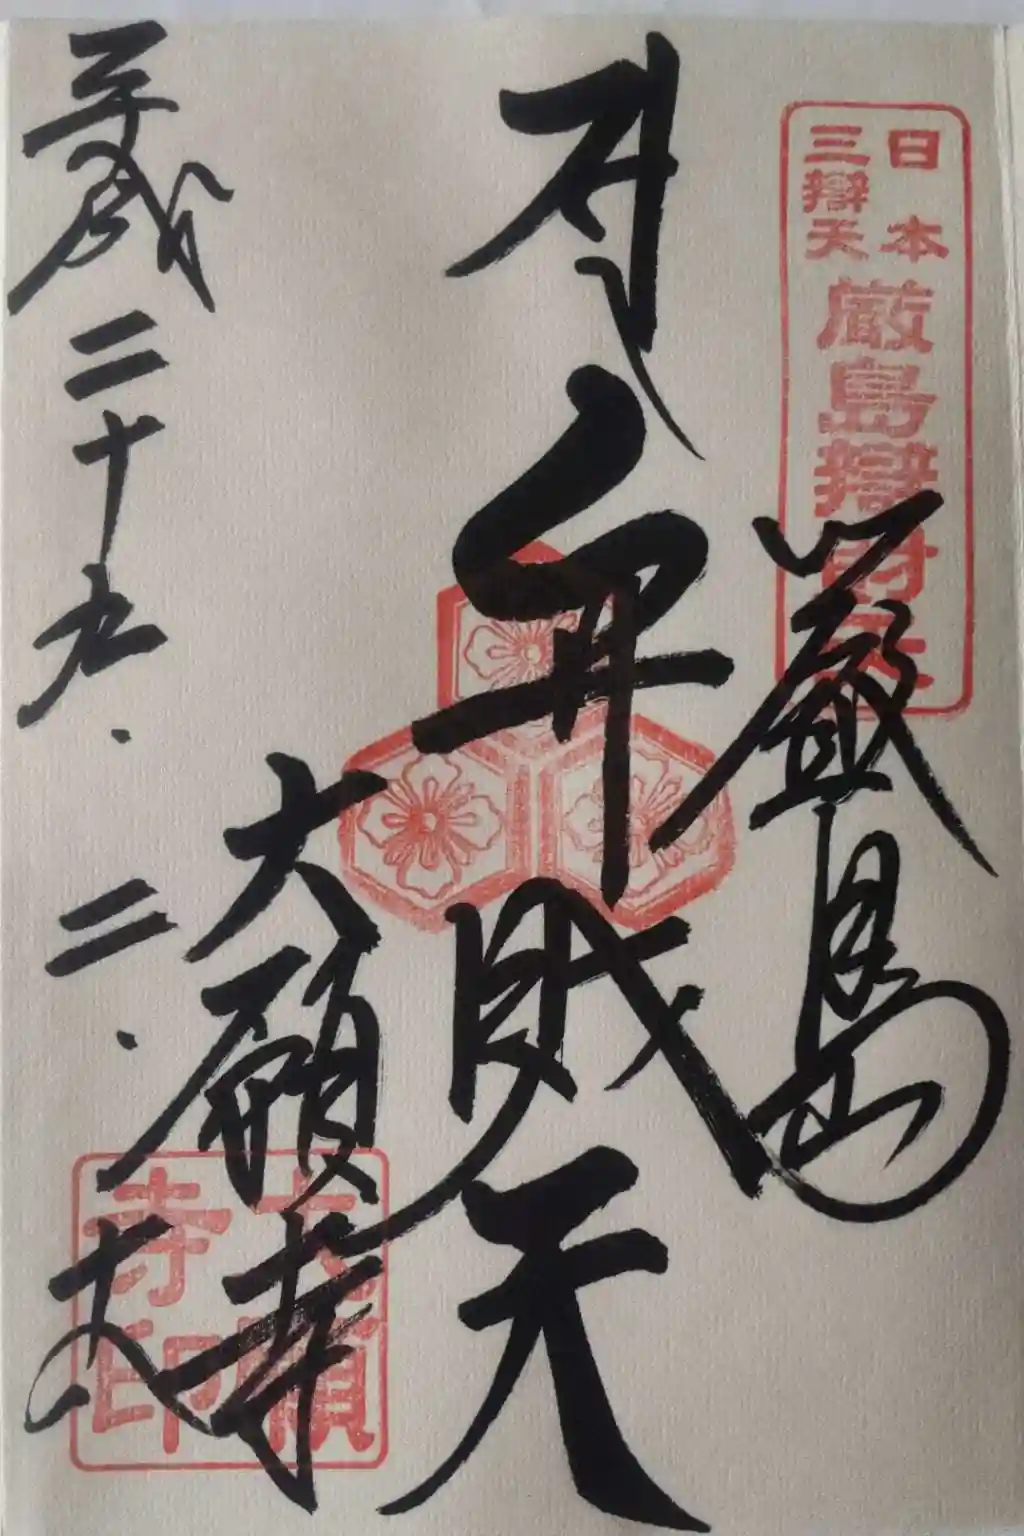 日本
三辯天
厳島辯財天
厳島
弁財天
大願寺
大願寺印
平成二十九.二.